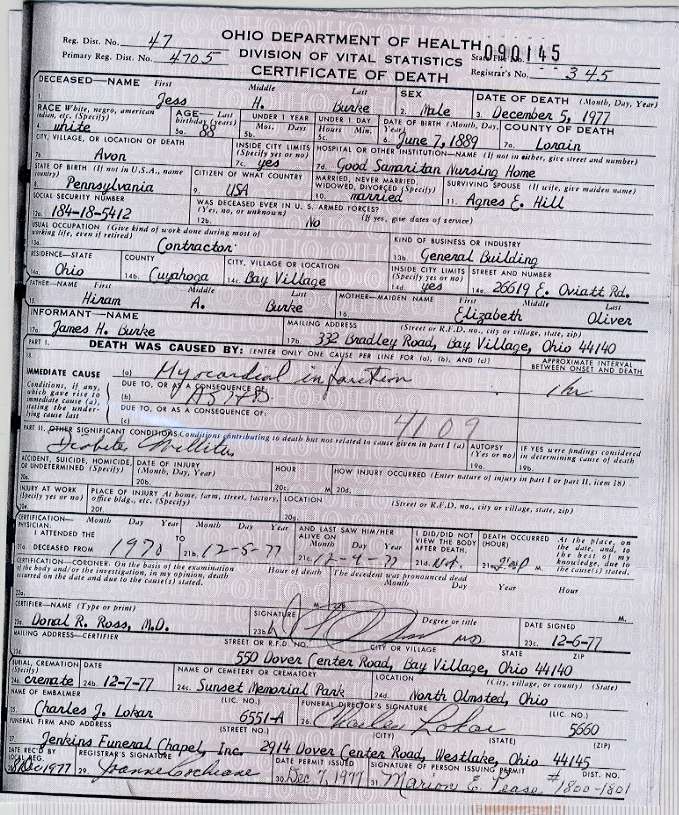 Reg. Dist. No. 47 OHIO DEPARTMENT OF HEALTH 090145
Primary Reg. Dist. No. 4705 DIVISION OF VITAL STATISTICS State File No.
CERTIFICATE OF DEATH Registrar's No. 345
DECEASED—NAME First Middle Last SEX DATE OF DEATH (Month, Day, Year)
1. Jess H. Burke 2. Male 3. December 5, 1977
RACE White, negro, american indian, etc. (Specify) AGE—Last birthday (years) UNDER 1 YEAR Mos. Days UNDER 1 DAY Hours Min. DATE OF BIRTH (Month, Day, Year) COUNTY OF DEATH
4. white 5a. 88 5b. 5c. 6. June 7, 1889 7a. Lorain
CITY, VILLAGE, OR LOCATION OF DEATH INSIDE CITY LIMITS (Specify yes or no) HOSPITAL OR OTHER INSTITUTION—NAME (If not in either, give street and number)
7b. Avon 7c. yes 7d. Good Samaritan Nursing Home
STATE OF BIRTH (If not in U.S.A., name country) CITIZEN OF WHAT COUNTRY MARRIED, NEVER MARRIED, WIDOWED, DIVORCED (Specify) SURVIVING SPOUSE (If wife, give maiden name)
8. Pennsylvania 9. USA 10. married 11. Agnes E. Hill
SOCIAL SECURITY NUMBER WAS DECEASED EVER IN U. S. ARMED FORCES? (Yes, no, or unknown) (If yes, give dates of service)
12a. 184-18-5412 12b. No
USUAL OCCUPATION (Give kind of work done during most of working life, even if retired) KIND OF BUSINESS OR INDUSTRY
13a. Contractor 13b. General Building
RESIDENCE—STATE COUNTY CITY, VILLAGE OR LOCATION INSIDE CITY LIMITS (Specify yes or no) STREET AND NUMBER
14a. Ohio 14b. Cuyahoga 14c. Bay Village 14d. yes 14e. 26619 E. Oviatt Rd.
FATHER—NAME First Middle Last MOTHER—MAIDEN NAME First Middle Last
15. Hiram A. Burke 16. Elizabeth Oliver
INFORMANT—NAME MAILING ADDRESS (Street or R.F.D. no., city or village, state, zip)
17a. James H. Burke 17b. 332 Bradley Road, Bay Village, Ohio 44140
PART I. DEATH WAS CAUSED BY: [ENTER ONLY ONE CAUSE PER LINE FOR (a), (b), AND (c)] APPROXIMATE INTERVAL BETWEEN ONSET AND DEATH
18.
IMMEDIATE CAUSE (a) Myocardial infarction 1 hr
Conditions, if any, which gave rise to immediate cause (a), stating the underlying cause last
DUE TO, OR AS A CONSEQUENCE OF:
(b) ASHD
DUE TO, OR AS A CONSEQUENCE OF:
(c) 4109
PART II. OTHER SIGNIFICANT CONDITIONS: Conditions contributing to death but not related to cause given in part I (a) AUTOPSY (Yes or no) IF YES were findings considered in determining cause of death
Diabetes Mellitus 19a. 19b.
ACCIDENT, SUICIDE, HOMICIDE, OR UNDETERMINED (Specify) DATE OF INJURY (Month, Day, Year) HOUR HOW INJURY OCCURRED (Enter nature of injury in part I or part II, item 18)
20b. 20c. M. 20d.
INJURY AT WORK (Specify yes or no) PLACE OF INJURY At home, farm, street, factory, office bldg., etc. (Specify) LOCATION (Street or R.F.D. no., city or village, state, zip)
20g.
CERTIFICATION—PHYSICIAN: Month Day Year Month Day Year AND LAST SAW HIM/HER ALIVE ON Month Day Year I DID/DID NOT VIEW THE BODY AFTER DEATH. DEATH OCCURRED (HOUR) At the place, on the date, and, to the best of my knowledge, due to the cause(s) stated.
I ATTENDED THE DECEASED FROM
21a. 1970 TO 21b. 12-5-77 21c. 12-4-77 21d. 21e. M.
CERTIFICATION—CORONER: On the basis of the examination of the body and/or the investigation, in my opinion, death occurred on the date and due to the cause(s) stated. Hour of death The decedent was pronounced dead Month Day Year Hour
M. 22b. M.
CERTIFIER—NAME (Type or print) SIGNATURE Degree or title DATE SIGNED
23a. Donal R. Ross, M.D. 23b. MD 23c. 12-6-77
MAILING ADDRESS—CERTIFIER STREET OR R.F.D. NO. CITY OR VILLAGE STATE ZIP
550 Dover Center Road, Bay Village, Ohio 44140
BURIAL, CREMATION (Specify) DATE NAME OF CEMETERY OR CREMATORY LOCATION (City, village, or county) (State)
24a. cremate 24b. 12-7-77 24c. Sunset Memorial Park 24d. North Olmsted, Ohio
NAME OF EMBALMER (LIC. NO.) FUNERAL DIRECTOR'S SIGNATURE (LIC. NO.)
25. Charles J. Lokar 6551-A 26. Charles Lokar 5660
FUNERAL FIRM AND ADDRESS (STREET NO.) (CITY) (STATE) (ZIP)
27. Jenkins Funeral Chapel, Inc. 2914 Dover Center Road, Westlake, Ohio 44145
DATE REC'D BY LOCAL REG. REGISTRAR'S SIGNATURE DATE PERMIT ISSUED SIGNATURE OF PERSON ISSUING PERMIT DIST. NO.
28. Dec 1977 29. Joanne Cochrane 30. Dec 7, 1977 31. Marion E. Pease # 1800-1801